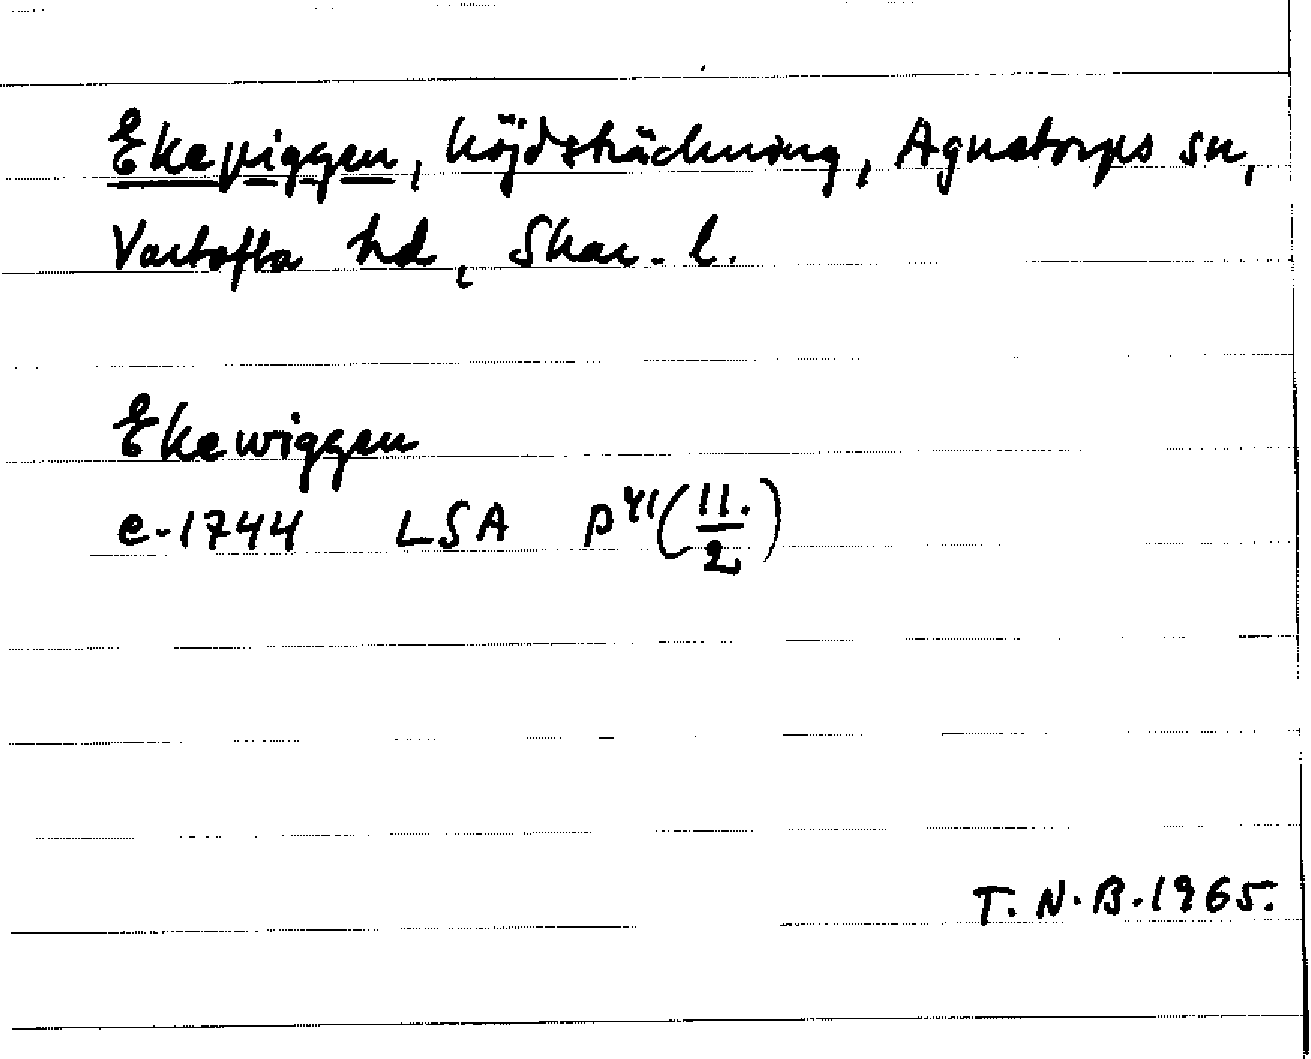 Ekeviggen, höjdsträckning, Agnetorps sn,
Vartofta hd, Skar. l.
Ekewiggen
e. 1744 LSA P41 (11./2)
T. N. B. 1965.